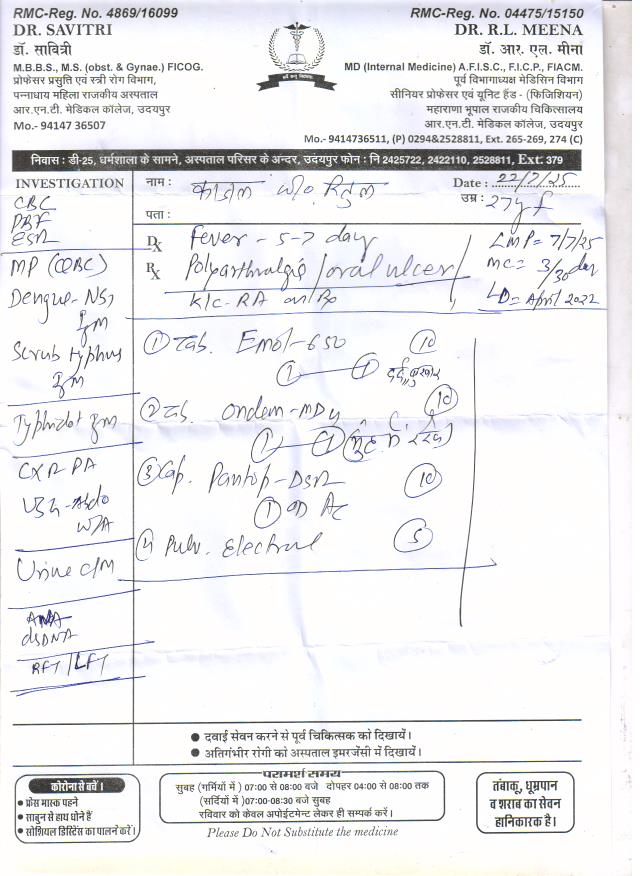 RMC-Reg. No. 4869/16099
DR. SAVITRI
डॉ. सावित्री
M.B.B.S., M.S. (obst. & Gynae.) FICOG.
प्रोफेसर प्रसुति एवं स्त्री रोग विभाग,
पन्नाधाय महिला राजकीय अस्पताल
आर.एन.टी. मेडिकल कॉलेज, उदयपुर
Mo.- 94147 36507
RMC-Reg. No. 04475/15150
DR. R.L. MEENA
डॉ. आर. एल. मीना
MD (Internal Medicine) A.F.I.S.C., F.I.C.P., FIACM.
पूर्व विभागाध्यक्ष मेडिसिन विभाग
सीनियर प्रोफेसर एवं यूनिट हैड - (फिजिशियन)
महाराणा भूपाल राजकीय चिकित्सालय
आर.एन.टी. मेडिकल कॉलेज, उदयपुर
Mo.- 9414736511, (P) 0294&2528811, Ext. 265-269, 274 (C)
निवास : डी-25, धर्मशाला के सामने, अस्पताल परिसर के अन्दर, उदयपुर फोन : नि 2425722, 2422110, 2528811, Ext. 379
INVESTIGATION
CBC
PBF
ESR
MP (QBC)
Dengue-NS1
IgM
Scrub typhus
IgM
Typhidot IgM
CXR PA
USG-Abdo
W/A
Urine C/M
ANA
dsDNA
RFT/LFT
नाम : काजल w/o
Date : 22/7/25
उम्र : 27y f
पता :
Dx Fever - 5-7 day
Rx Polyarthralgia/oral ulcer/
K/C-RA on Rx
LMP = 7/7/25
MC = 3/30 day
LD = April 2022
① Tab. Emol-650 10
1 — 1 दर्द, बुखार
② Tab. Ondem-MD 4 10
1 — 1 (मुँह में रखे)
③ Cap. Pantop-DSR 10
1 OD AC
4 Pulv. Electral 5
● दवाई सेवन करने से पूर्व चिकित्सक को दिखायें।
● अतिगंभीर रोगी को अस्पताल इमरजेंसी में दिखायें।
कोरोना से बचें।
● फ्रेस मास्क पहने
● साबुन से हाथ धोने हैं
● सोशियल डिस्टेंस का पालन करें।
परामर्श समय
सुबह (गर्मियों में) 07:00 से 08:00 बजे दोपहर 04:00 से 08:00 तक
(सर्दियों में) 07:00-08:30 बजे सुबह
रविवार को केवल अपोईटमेन्ट लेकर ही सम्पर्क करें।
Please Do Not Substitute the medicine
तंबाकू, धूम्रपान
व शराब का सेवन
हानिकारक है।